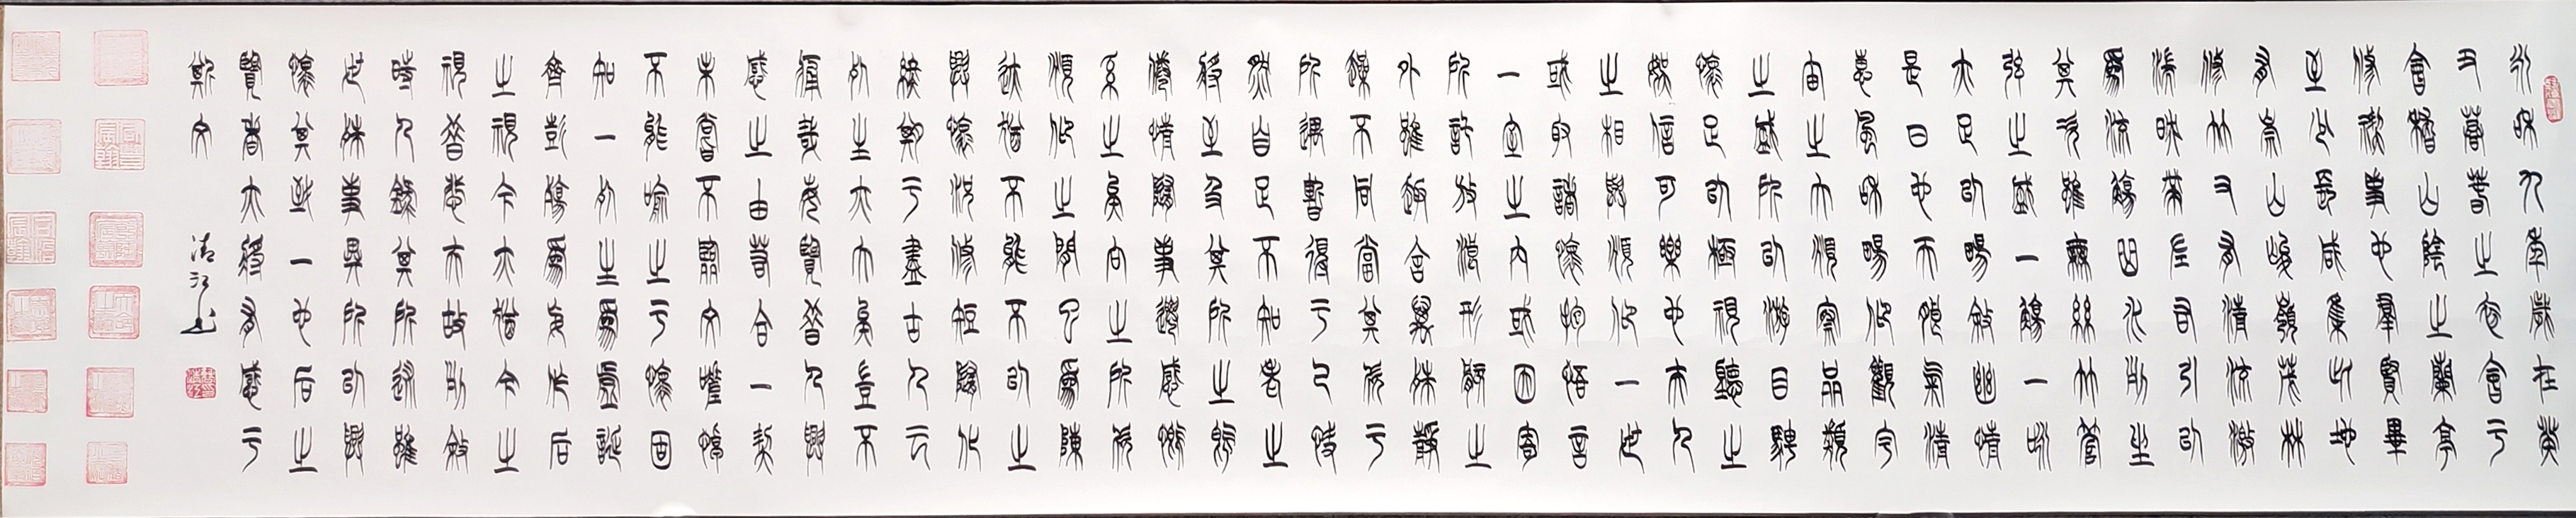 永和九年歲在癸
丑暮春之初會于
會稽山陰之蘭亭
修禊事也群賢畢
至少長咸集此地
有崇山峻嶺茂林
修竹又有清流激
湍映帶左右引以
為流觴曲水列坐
其次雖無絲竹管
弦之盛一觴一詠
亦足以暢敘幽情
是日也天朗氣清
惠風和暢仰觀宇
宙之大俯察品類
之盛所以游目騁
懷足以極視聽之
娛信可樂也夫人
之相與俯仰一世
或取諸懷抱悟言
一室之內或因寄
所託放浪形骸之
外雖趣舍萬殊靜
躁不同當其欣于
所遇暫得于己快
然自足不知老之
將至及其所之既
倦情隨事遷感慨
係之矣向之所欣
俯仰之間已為陳
跡猶不能不以之
興懷況修短隨化
終期于盡古人云
死生亦大矣豈不
痛哉每覽昔人興
感之由若合一契
未嘗不臨文嗟悼
不能喻之于懷固
知一死生為虛誕
齊彭殤為妄作后
之視今亦猶今之
視昔悲夫故列敘
時人錄其所述雖
世殊事異所以興
懷其致一也后之
覽者亦將有感于
斯文
清江書